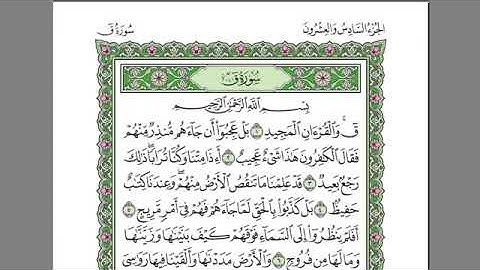 الجُزْءُ السَّادِسُ وَالعِشْرُونَ
سُورَةُ قٓ
سُورَةُ قٓ
بِسْمِ اللَّهِ الرَّحْمَٰنِ الرَّحِيمِ
قٓ ۚ وَالْقُرْءَانِ الْمَجِيدِ ١ بَلْ عَجِبُوٓا۟ أَن جَآءَهُم مُّنذِرٌ مِّنْهُمْ
فَقَالَ الْكَٰفِرُونَ هَٰذَا شَىْءٌ عَجِيبٌ ٢ أَءِذَا مِتْنَا وَكُنَّا تُرَابًا ۖ ذَٰلِكَ
رَجْعٌۢ بَعِيدٌ ٣ قَدْ عَلِمْنَا مَا تَنقُصُ الْأَرْضُ مِنْهُمْ ۖ وَعِندَنَا كِتَٰبٌ
حَفِيظٌۢ ٤ بَلْ كَذَّبُوا۟ بِالْحَقِّ لَمَّا جَآءَهُمْ فَهُمْ فِىٓ أَمْرٍ مَّرِيجٍ ٥
أَفَلَمْ يَنظُرُوٓا۟ إِلَى السَّمَآءِ فَوْقَهُمْ كَيْفَ بَنَيْنَٰهَا وَزَيَّنَّٰهَا
وَمَا لَهَا مِن فُرُوجٍ ٦ وَالْأَرْضَ مَدَدْنَٰهَا وَأَلْقَيْنَا فِيهَا رَوَٰسِىَ